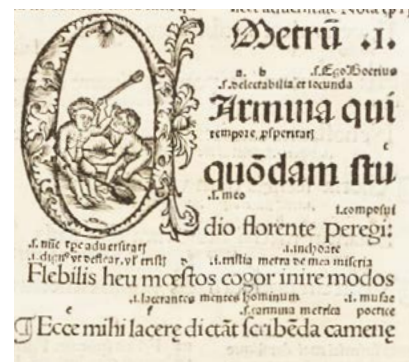 Metrū .I.
a. b .s. Ego Boetius
.s. delectabilia et iocunda
Armina qui
tempore ꝓsperitatꝭ
c
quōdam stu
.s. meo
.i. composui
dio florente peregi:
.s. nūc tꝑe aduersitatꝭ
.i. dignꝰ vt defleat. vl' tristꝭ .i. inchoare
.i. tristia metra de mea miseria
Flebilis heu mœstos cogor inire modos
.i. lacerantes mentes hominum .i. musae
e f .s. carmina metrica poetice
¶ Ecce mihi lacerę dictāt scribēda camenę